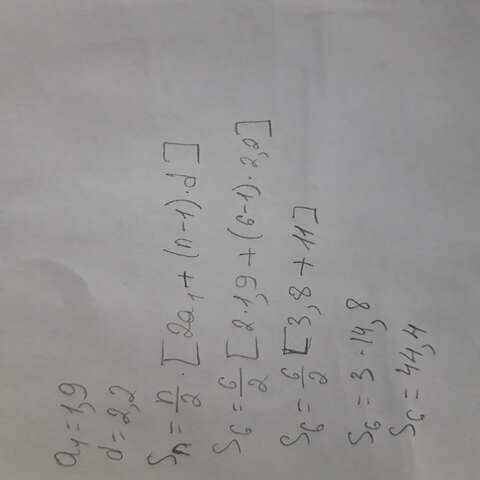 a₁=1,9
d=2,2
Sₙ=n/2·[2a₁+(n-1)·d]
S₆=6/2[2·1,9+(6-1)·2,2]
S₆=6/2[3,8+11]
S₆=3·14,8
S₆=44,4